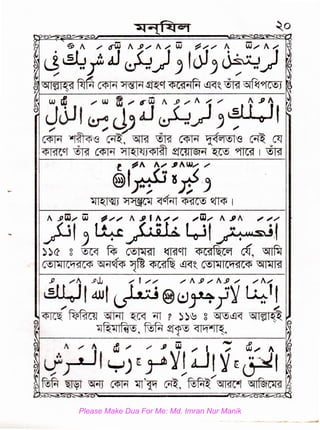 মনযিল ২০
لَمْ يَتَّخِذْ وَلَدًا وَّلَمْ يَكُنْ لَّهٗ شَرِيْكٌ فِي
আল্লাহর যিনি কোন সন্তান গ্রহণ করেননি এবং তাঁর আধিপত্যে
الْمُلْكِ وَلَمْ يَكُنْ لَّهٗ وَلِيٌّ مِّنَ الذُّلِّ
কোন শরীকও নেই, আর তাঁর কোন দুর্বলতাও নেই যে
কারণে তাঁর কোন সাহায্যকারী প্রয়োজন হতে পারে । তাঁর
وَكَبِّرْهُ تَكْبِيْرًا
মাহাত্ম্য সসম্ভ্রমে বর্ণনা করতে থাক ।
اَفَحَسِبْتُمْ اَنَّمَا خَلَقْنٰكُمْ عَبَثًا وَّاَنَّكُمْ
১১৫ ঃ তবে কি তোমরা ধারণা করেছিলে যে, আমি
তোমাদেরকে অনর্থক সৃষ্টি করেছি এবং তোমাদেরকে আমার
اِلَيْنَا لَا تُرْجَعُوْنَ فَتَعٰلَى اللّٰهُ الْمَلِكُ
কাছে ফিরিয়ে আনা হবে না ? ১১৬ ঃ অতএব আল্লাহ
মহিমান্বিত, তিনি প্রকৃত বাদশাহ,
الْحَقُّ لَا اِلٰهَ اِلَّا هُوَ رَبُّ الْعَرْشِ
তিনি ছাড়া অন্য কোন মা'বুদ নেই, তিনিই আরশে আজিমের
Please Make Dua For Me: Md. Imran Nur Manik